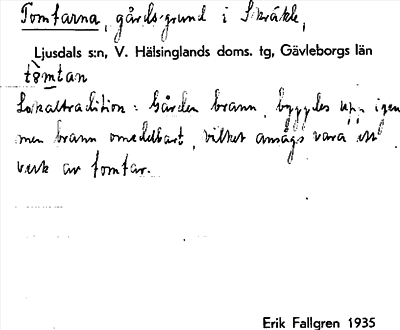 Tomtarna, gårdsgrund i Skräkle,
Ljusdals s:n, V. Hälsinglands doms. tg, Gävleborgs län
tòmtan
Lokaltradition: Gården brann, byggdes upp igen
men brann omedelbart, vilket ansågs vara ett
verk av tomtar.
Erik Fallgren 1935